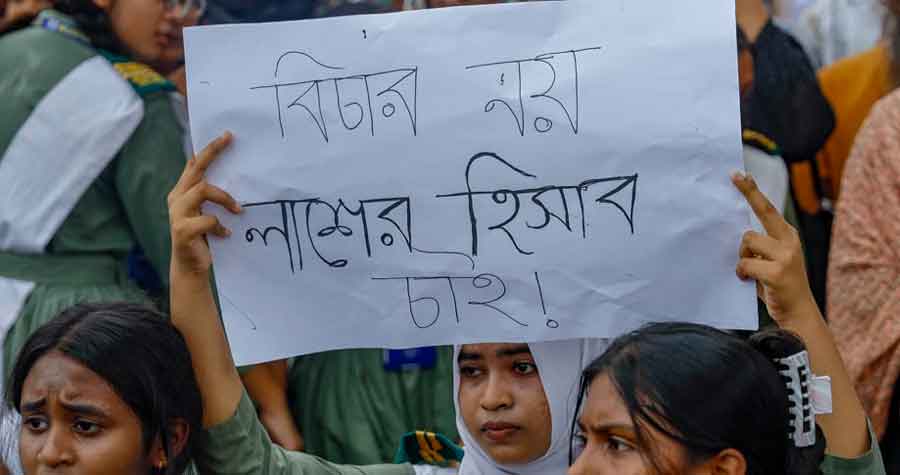 বিচার নয়
লাশের হিসাব
চাই!